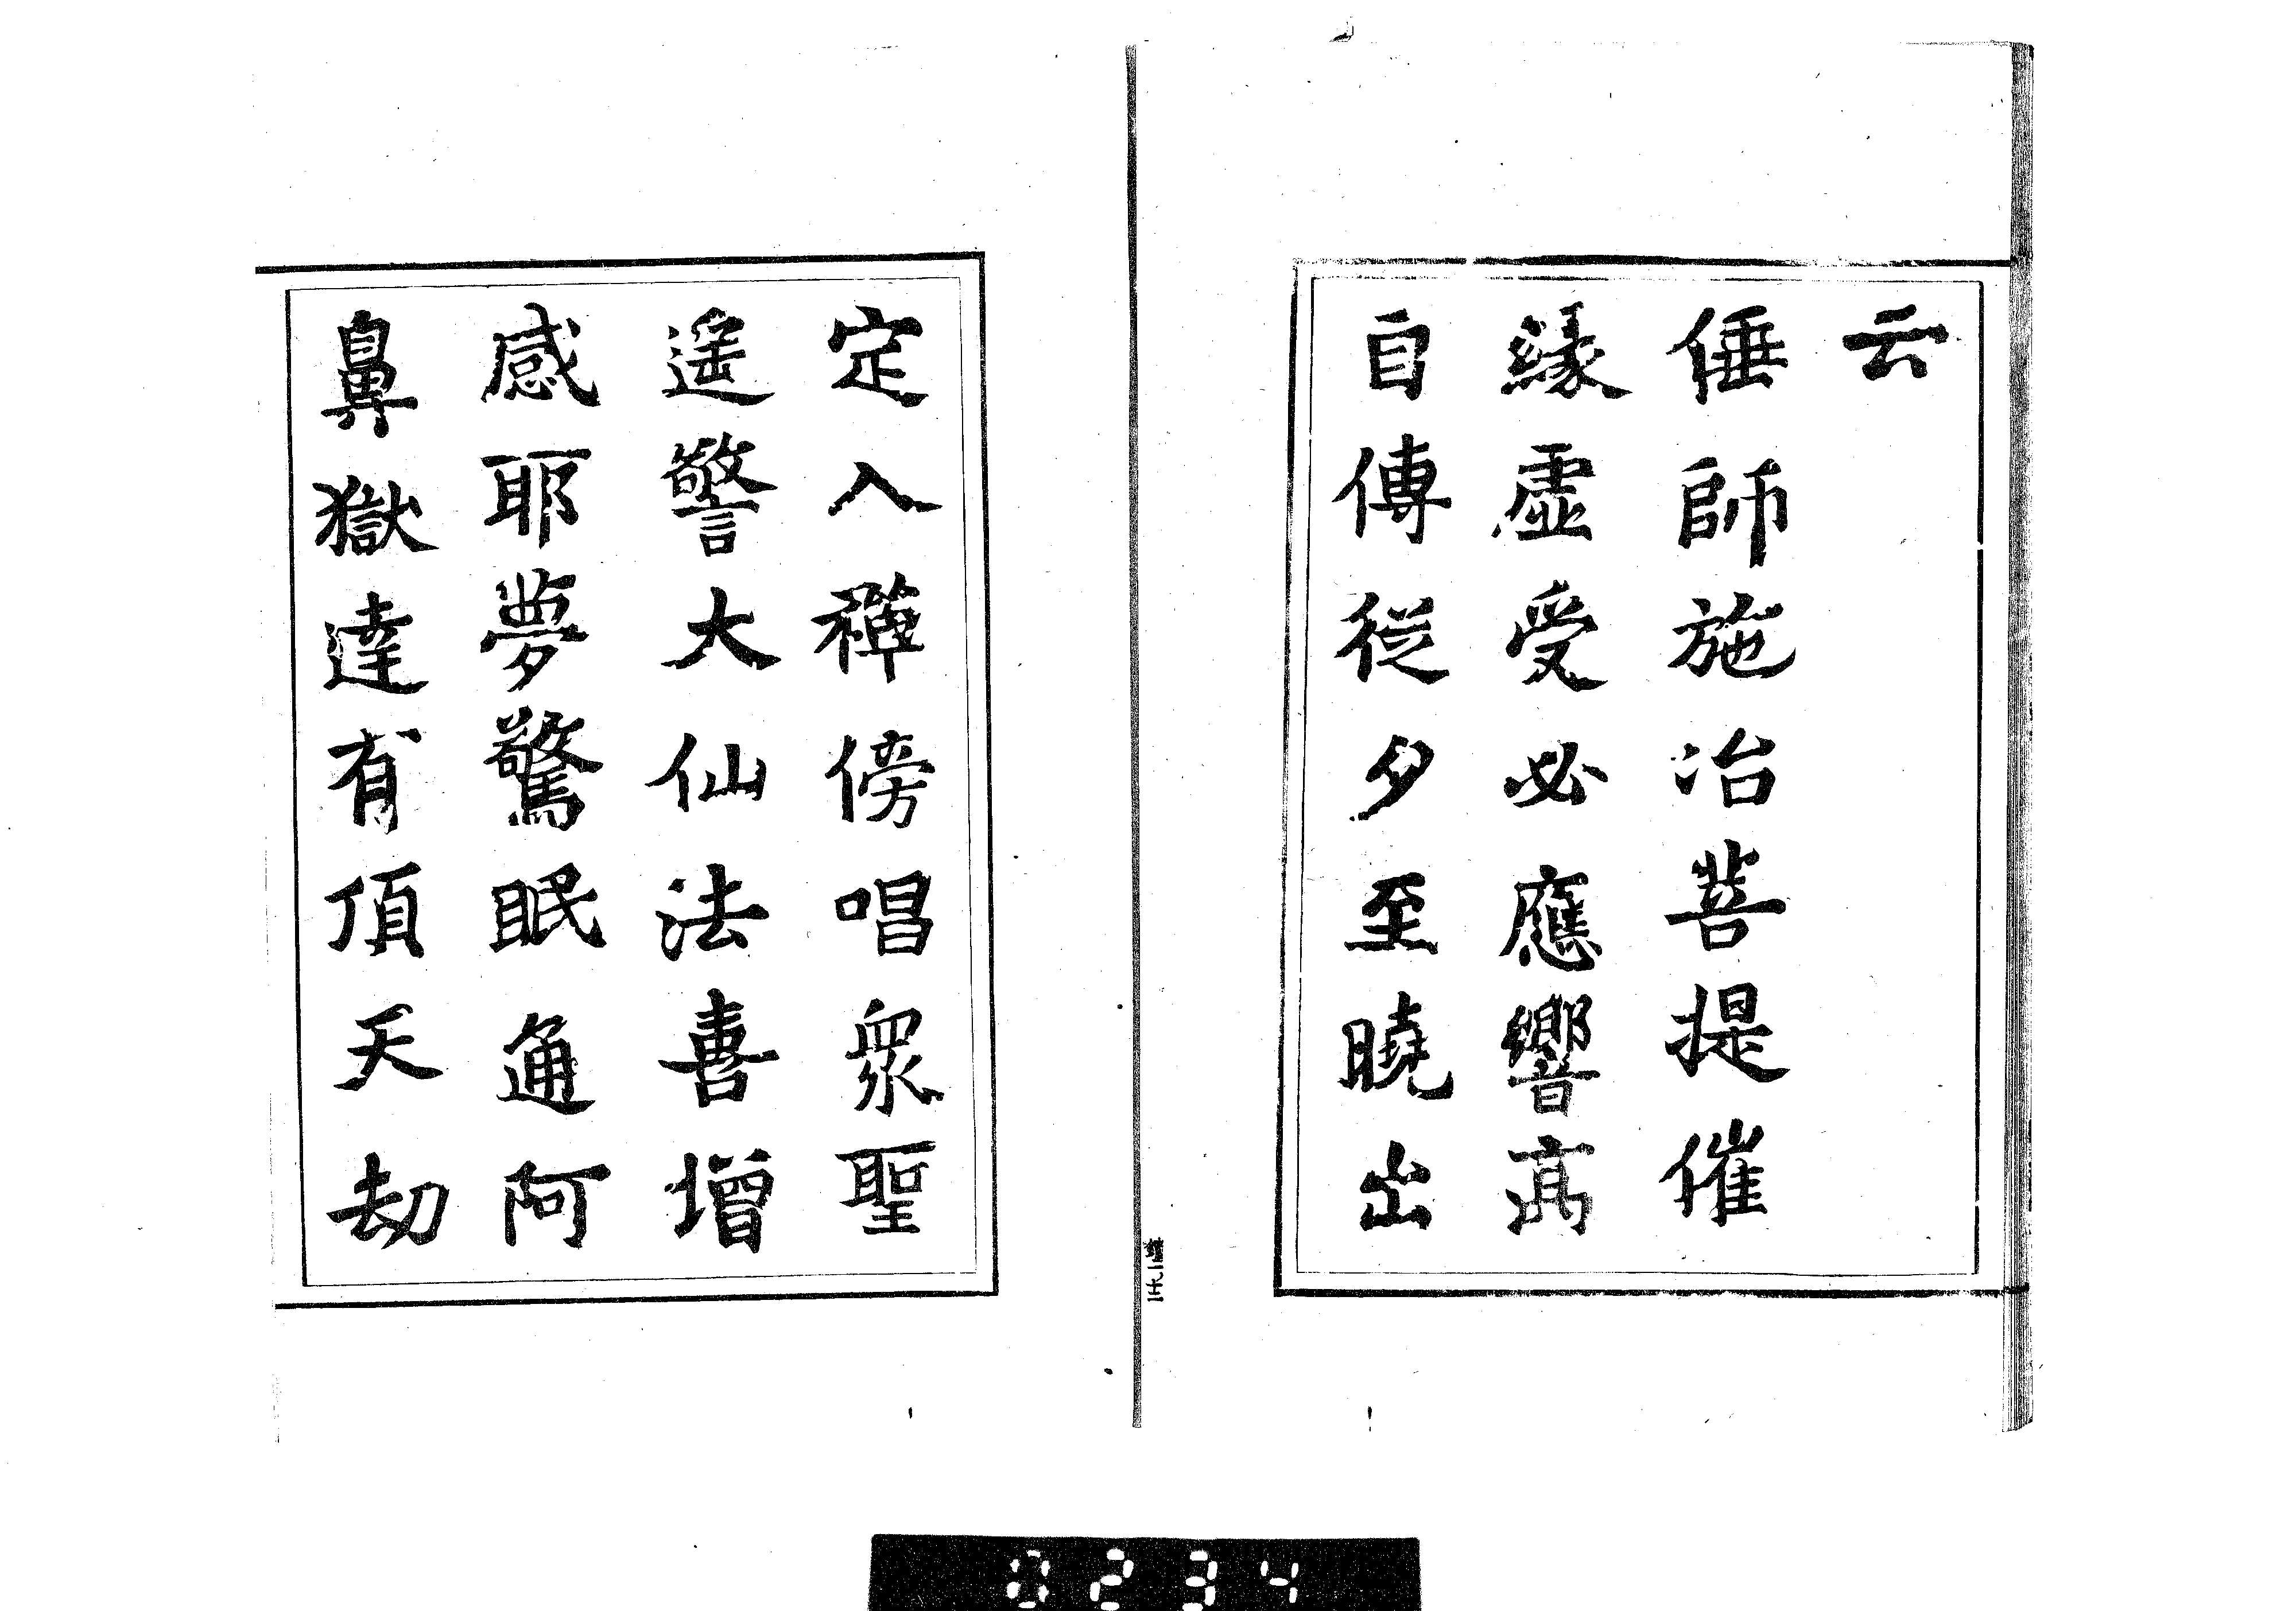 云
倕師施冶菩提催
緣虛受必應響高
自傳從夕至曉出
定入禪傍唱衆聖
遥警大仙法喜增
感耶夢驚眠通阿
鼻獄達有頂天劫
0234